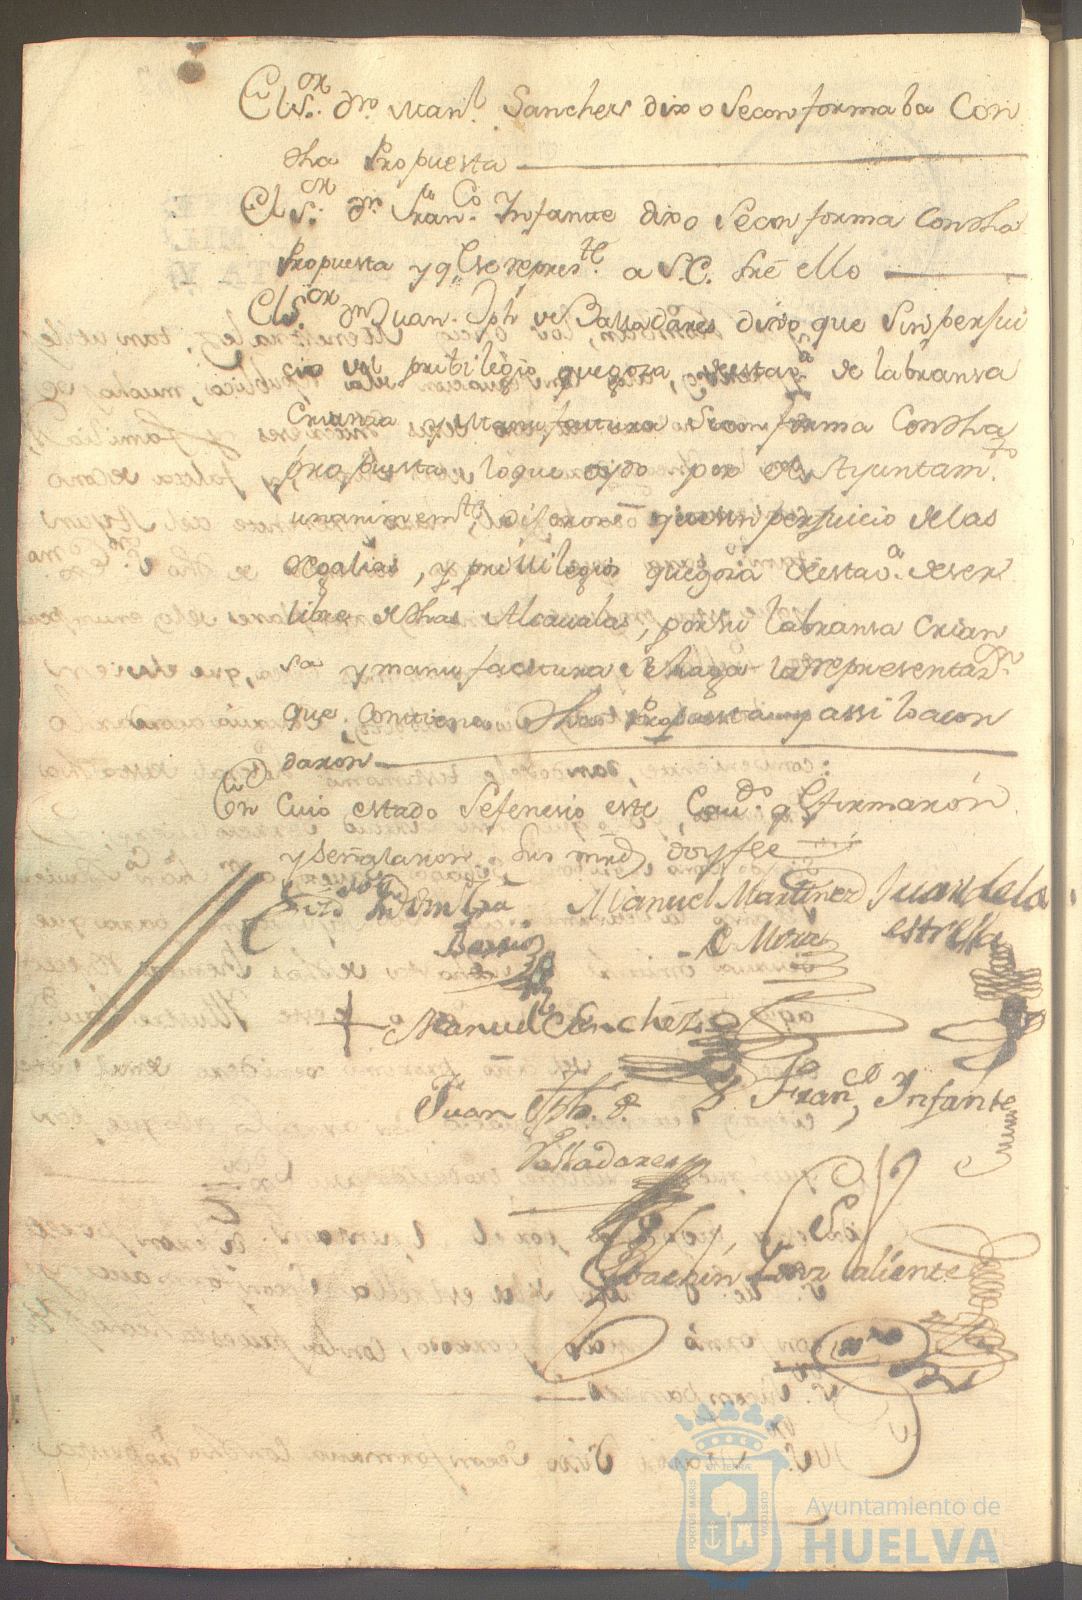 El S.or Dn. Man.l Sanches dixo Seconformaba Con
dha Propuesta
El S.or Dn. Fran.co Infante dixo Seconforma Condha
Propuesta y q.e se repres.te a S.E. sre ello
El S.or Dn Juan Jph de Balladares dixo que Sin perjui
cio del pribilegio que goza, desta v.a de labransa
Crianza y Manufactura Seconforma Condha
propuesta, lo que oydo por el Ayuntam.to
unanimem.te, dixeron que sin perjuicio delas
Regalias, y privilegios que goza desta v.a de ser
libre de dhas Alcavalas, por su labransa Crian
sa y manufactura se haga la representaz.n
que contiene dha propuesta y assi lo acor
daron
En Cuio estado Sefenesio este Cav.do q.e firmarón
y señalaron Sus mrds, doyfee
Manuel Martinez Juan dela
Barrio e Mora estrella
Manuel Sanchez
Fran.co Infante
Juan Jph. d.
Valladares
Joachin Valiente
PORTUS MARIS ET TERRAE CUSTODIA
Ayuntamiento de
HUELVA